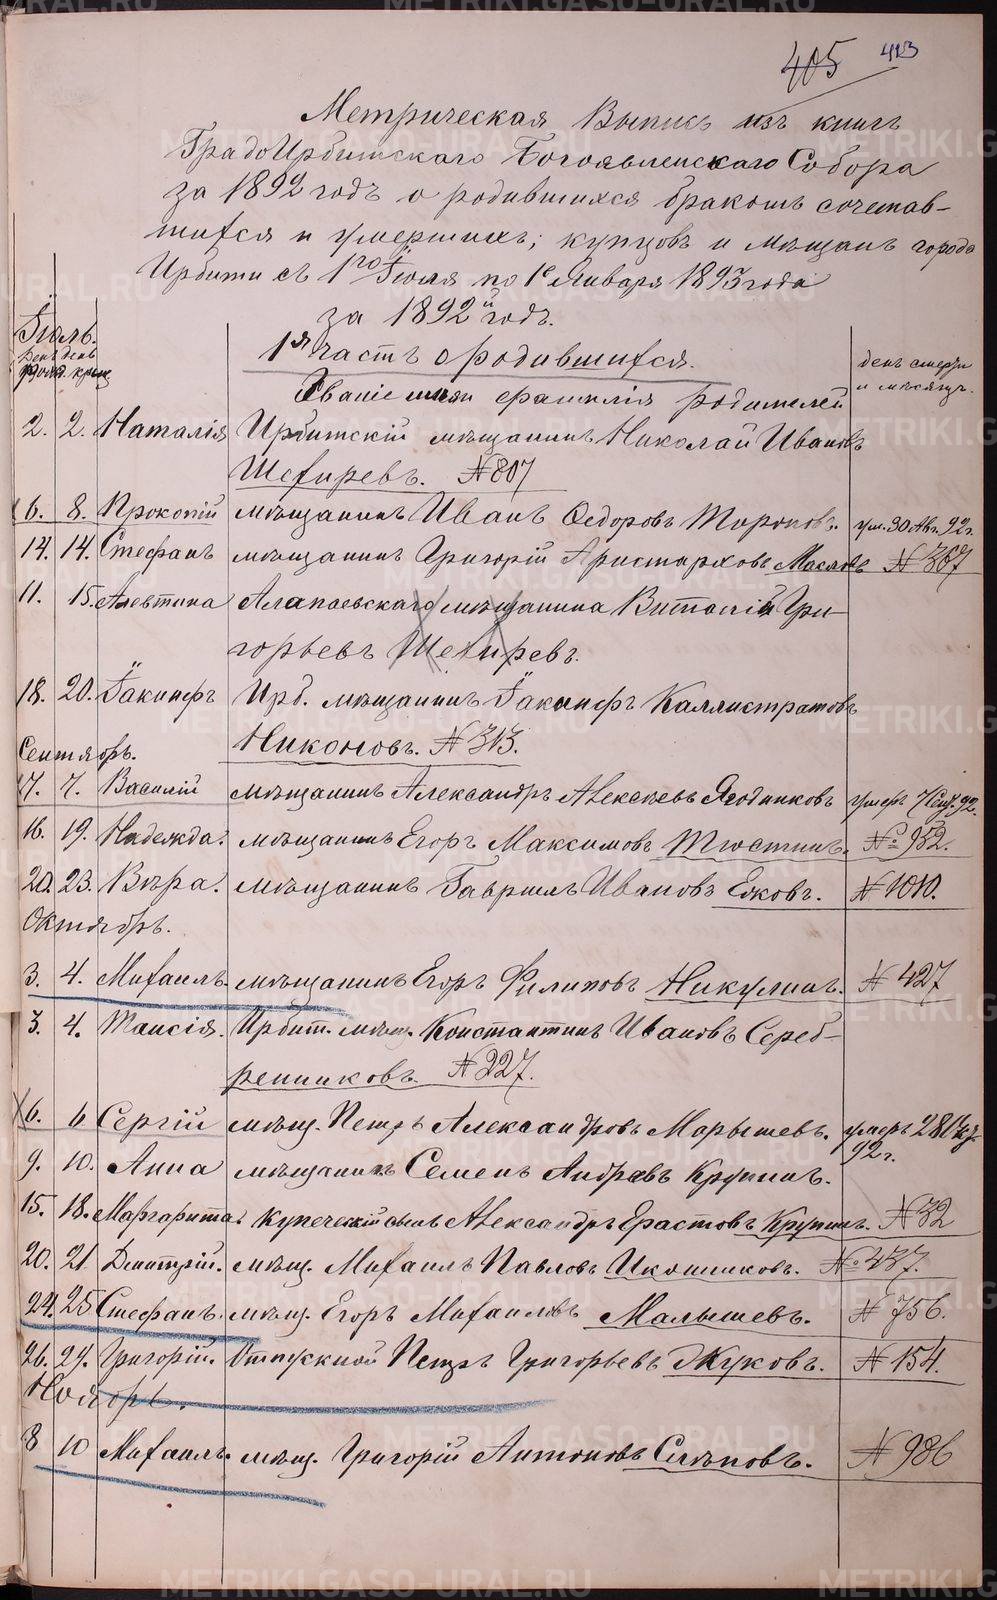 405 413
Метрическая Выпись изъ книгъ
ГрадоИрбитскаго Богоявленскаго Собора
за 1892 годъ о родившихся бракомъ сочетав-
шихся и умершихъ; купцовъ и мѣщанъ города
Ирбити съ 1го Іюля по 1е Января 1893 года
за 1892й годъ.
Іюль.
1я Часть о родившихся.
день рожд. день крещ. Званіе имя фамилія родителей день смерти и мѣсяцъ.
2. 2. Наталія Ирбитскій мѣщанинъ Николай Ивановъ
Шехиревъ. №807
6. 8. Прокопій мѣщанинъ Иванъ Ѳедоровъ Тороповъ. ум. 30 Авг. 92 г.
14. 14. Стефанъ мѣщанинъ Григорій Аристарховъ Масловъ №367
11. 15. Алевтина Алапаевскаго мѣщанина Виталій Гри-
горьевъ Шехиревъ.
18. 20. Іакинфъ Ирб. мѣщанинъ Іакинфъ Каллистратовъ
Никоновъ. №313.
Сентябрь.
7. 7. Василій мѣщанинъ Александръ Алексѣевъ Ягодниковъ умеръ 7 Сент. 92.
16. 19. Надежда. мѣщанинъ Егоръ Максимовъ Тюстинъ. №952.
20. 23. Вѣра. мѣщанинъ Гавріилъ Ивановъ Ежовъ. №1010.
Октябрь.
3. 4. Михаилъ. мѣщанинъ Егоръ Филиповъ Никулинъ. №427
3. 4. Таисія. Ирбит. мѣщ. Константинъ Ивановъ Сереб-
ренниковъ №227.
6. 6 Сергій мѣщ. Петръ Александровъ Марышевъ. умеръ 28
92 г.
9. 10. Анна мѣщанинъ Семенъ Андреевъ Крупинъ.
15. 18. Маргарита Купеческій сынъ Александръ Ерастовъ Крупинъ. №32
20. 21. Димитрій. мѣщ. Михаилъ Павловъ Иконниковъ. №437.
24. 25 Стефанъ. мѣщ. Егоръ Михаиловъ Малышевъ. №756.
26. 27. Григорій. Отпускной Петръ Григорьевъ Жуковъ. №154.
Ноябрь.
8 10 Михаилъ. мѣщ. Григорій Антоновъ Слѣповъ. №986
METRIKI.GASO-URAL.RU